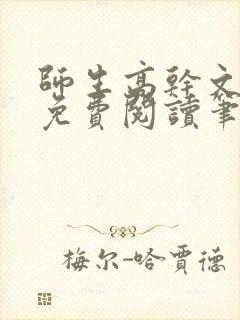 師生高幹文
免費閱讀筆
梅尔-哈賈德